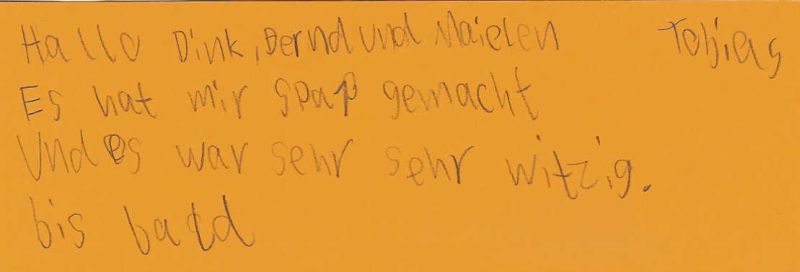 Hallo Dink, Bernd und Maielen
Tobias
Es hat mir spaß gemacht
Und es war sehr sehr witzig.
bis bald